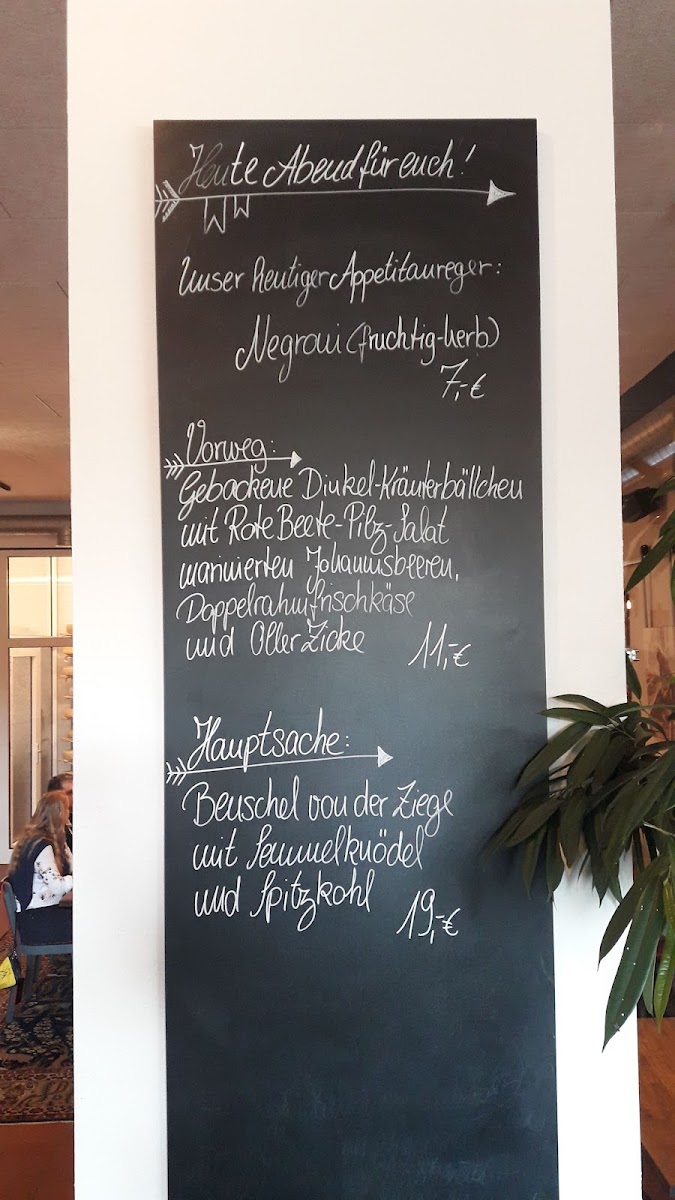 Heute Abend für euch!
Unser heutiger Appetitanreger:
Negroni (fruchtig-herb)
7,-€
Vorweg:
Gebackene Dinkel-Kräuterbällchen
mit Rote Beete-Pilz-Salat
marinierten Johannisbeeren,
Doppelrahmfrischkäse
und Oller Zicke 11,-€
Hauptsache:
Beuschel von der Ziege
mit Semmelknödel
und Spitzkohl 19,-€